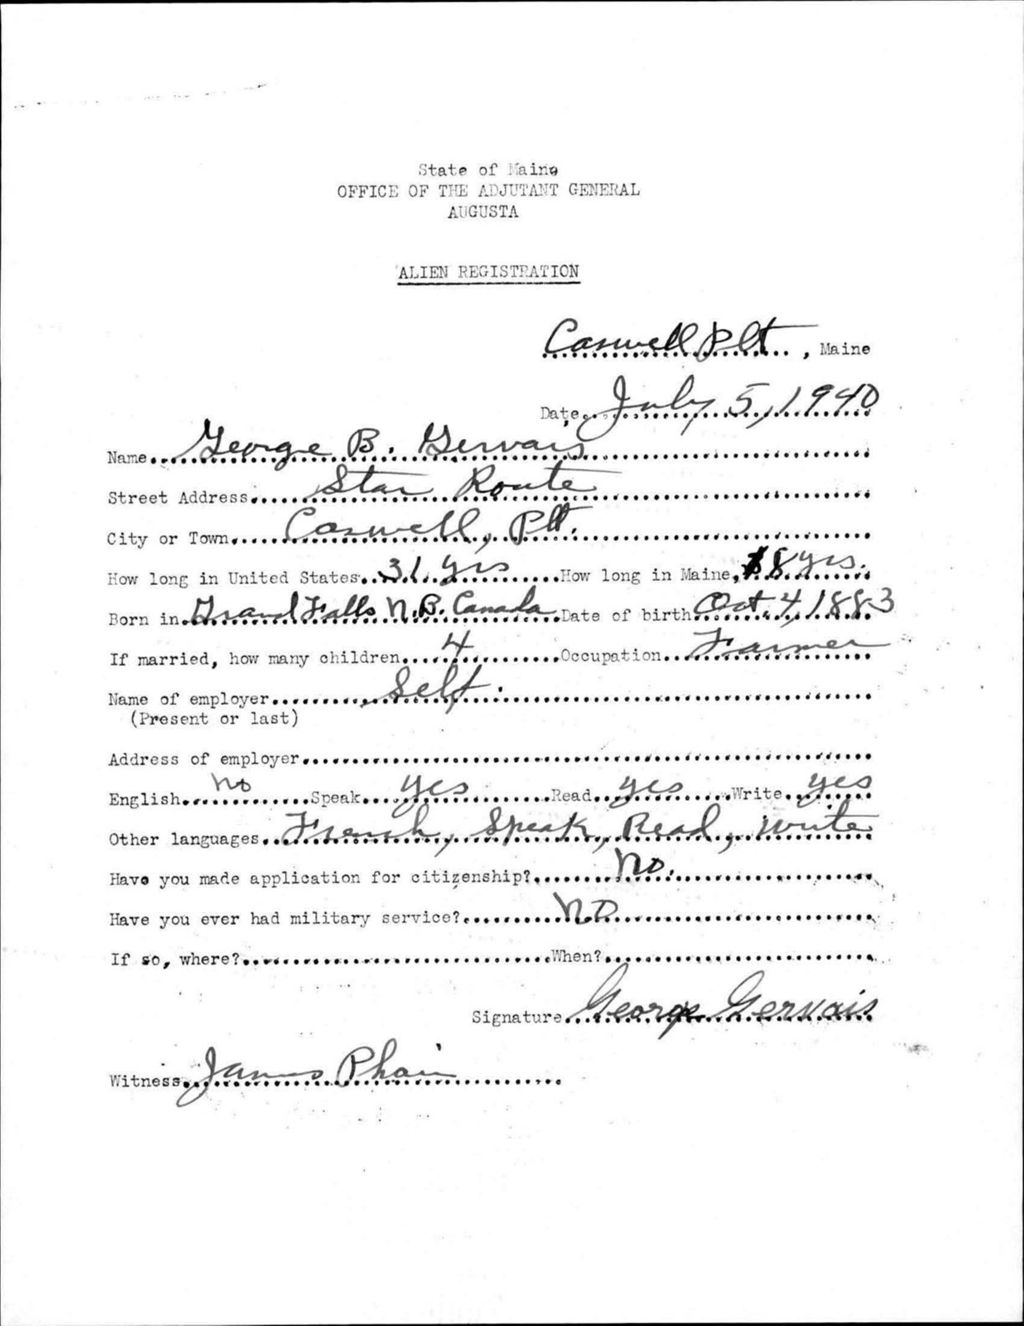 State of Maine
OFFICE OF THE ADJUTANT GENERAL
AUGUSTA
ALIEN REGISTRATION
Caswell Plt, Maine
Date July 5, 1940
Name George B. Gervais
Street Address Star Route
City or Town Caswell, Plt.
How long in United States 31 yrs How long in Maine 8 yrs.
Born in Grand Falls N.B. Canada Date of birth Oct 4, 1883
If married, how many children 4 Occupation Farmer
Name of employer Self.
(Present or last)
Address of employer
English No Speak yes Read yes Write yes
Other languages French, Speak, Read, Write
Have you made application for citizenship? No.
Have you ever had military service? No
If so, where? When?
Signature George Gervais
Witness James Phair